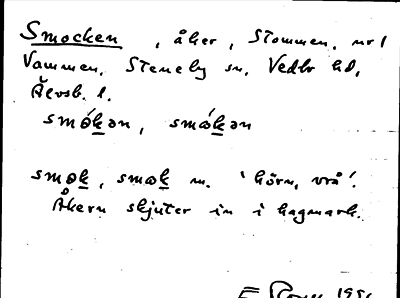 Smocken, åker, Stommen, nr 1
Vammen, Steneby sn, Vedbo hd,
Älvsb. l.
smɵ́k̲ən, smɷ́k̲ən
smɵk̲, smɷk̲ m. 'hörn, vrå'.
Åkern skjuter in i hagmark.
1951